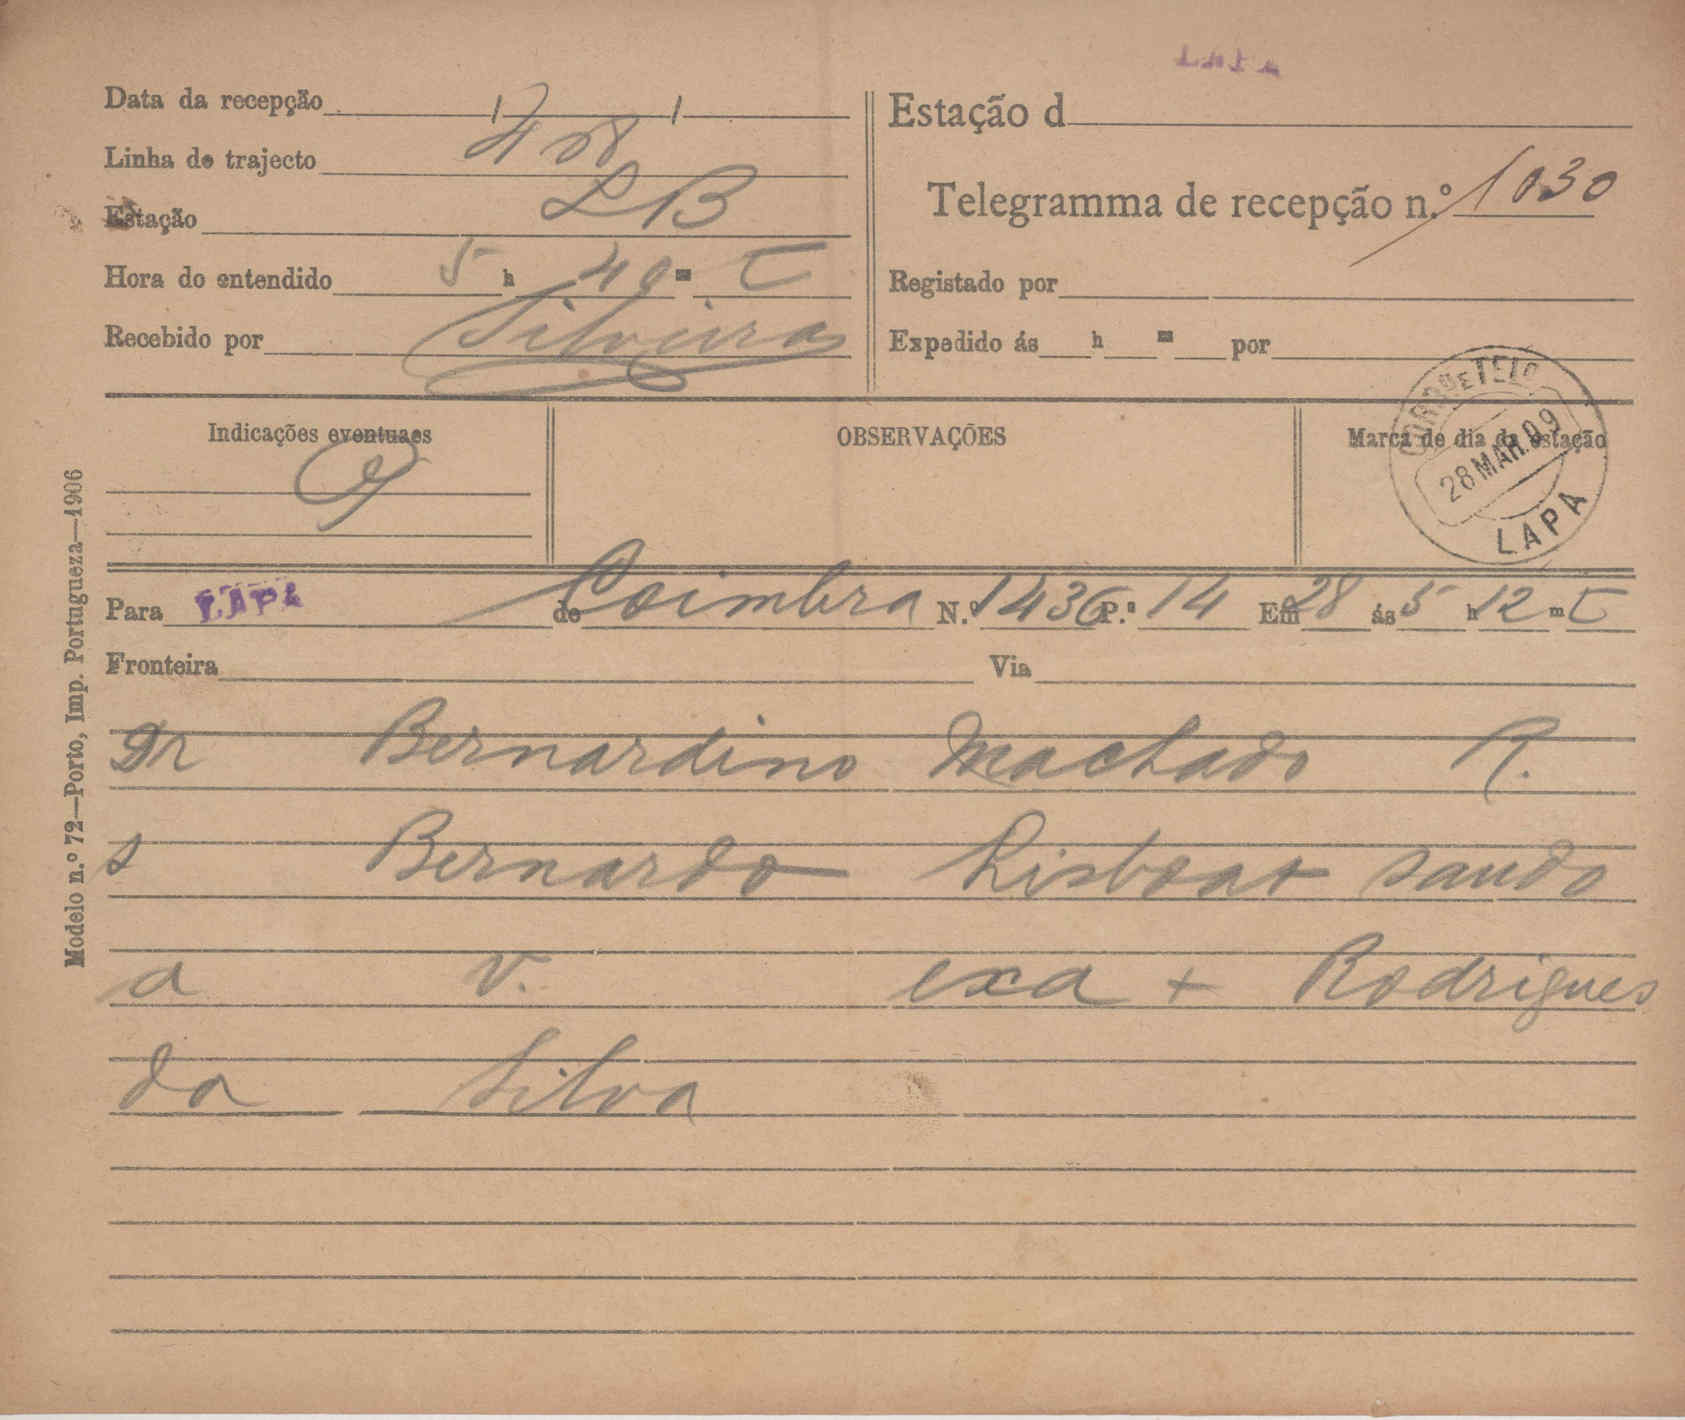 LAPA
Data da recepção / /
Linha de trajecto
Estação LB
Hora do entendido 5 h 40 m T
Recebido por Silveira
Estação d
Telegramma de recepção n.º 1030
Registado por
Expedido ás h m por
Indicações eventuaes
OBSERVAÇÕES
Marca de dia da estação
CORRO E TELO
28 MAR. 09
LAPA
Para LAPA de Coimbra N.º 1436 P.ª 14 Em 28 ás 5 h 12 m T
Fronteira Via
Dr Bernardino Machado R.
s Bernardo Lisboa + saudo
a v. exa + Rodrigues
da Silva
Modelo n.º 72—Porto, Imp. Portugueza—1906